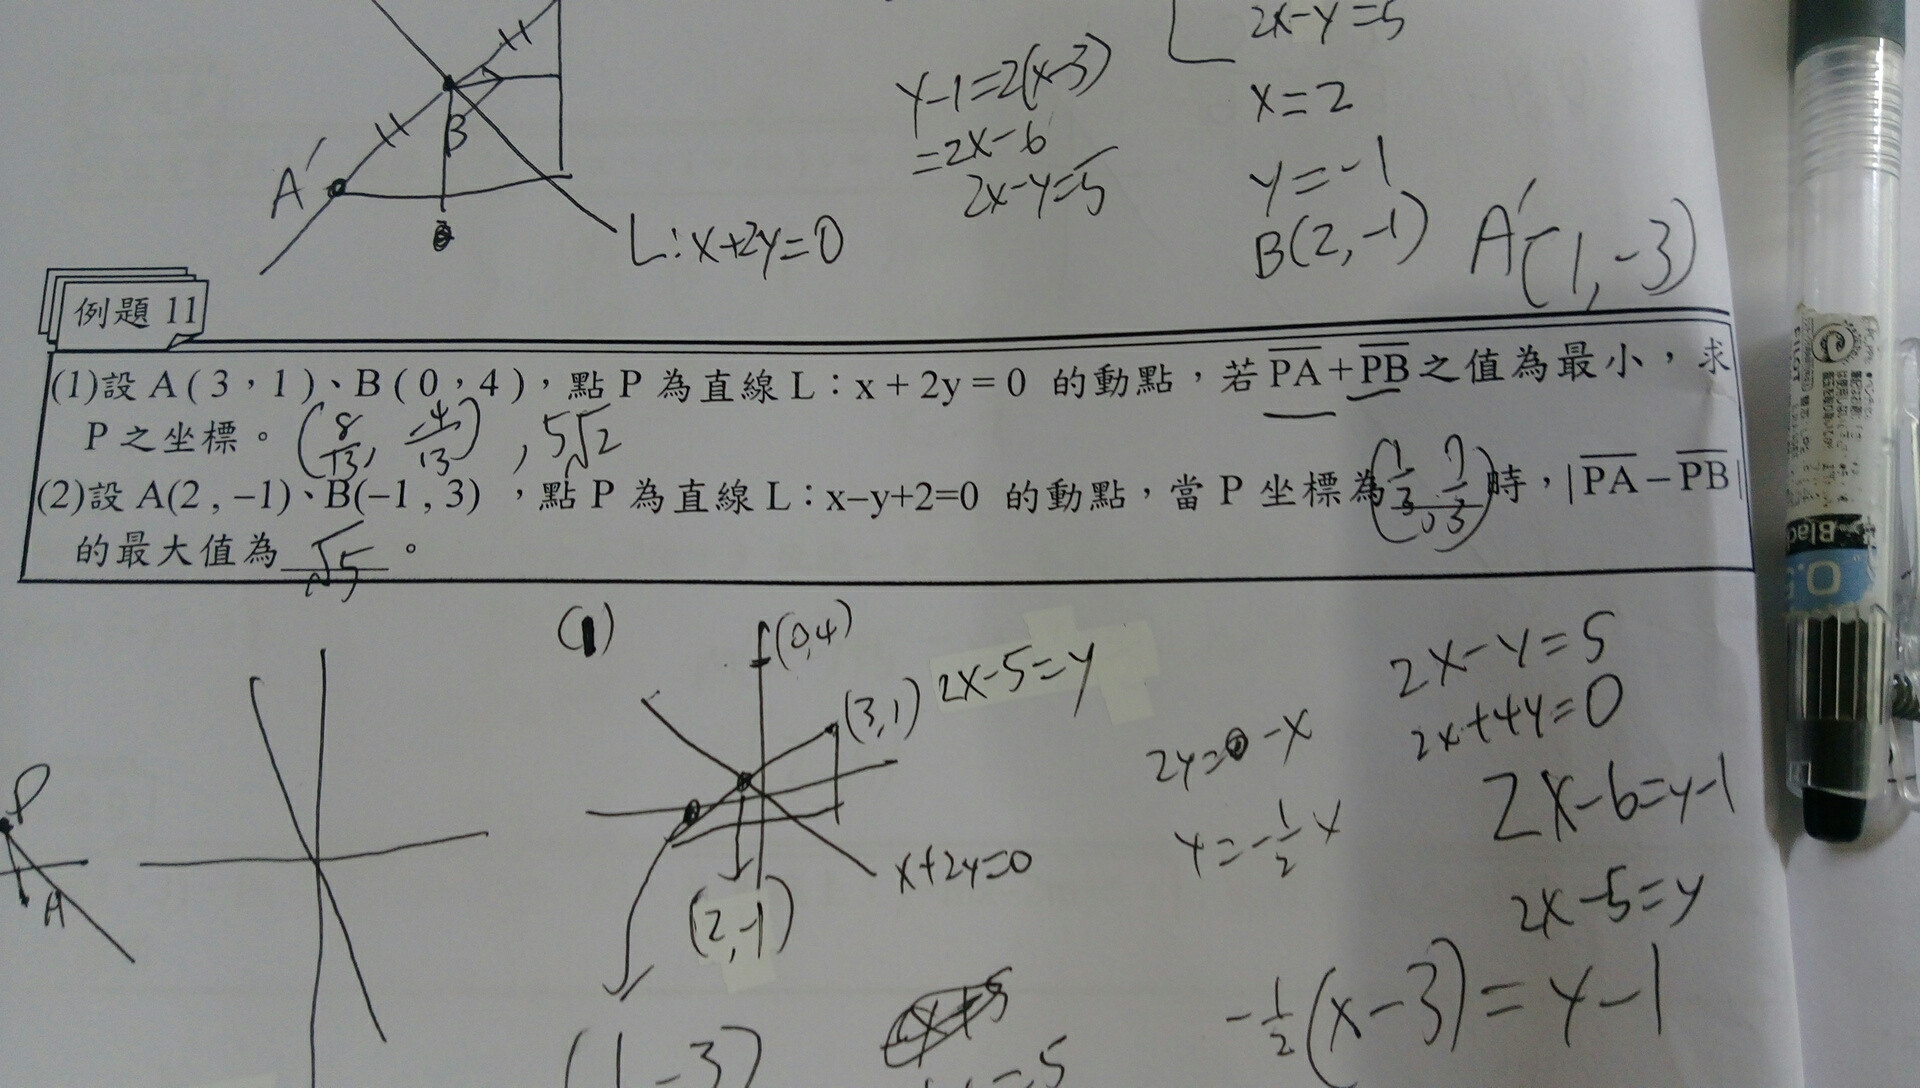 2x-y=5
y-1=2(x-3)
x=2
=2x-6
2x-y=5
y=-1
B
A′
L:x+2y=0
B(2,-1)
A′(1,-3)
例題 11
(1)設 A ( 3，1 )、B ( 0，4 )，點 P 為直線 L：x + 2y = 0 的動點，若 PA + PB 之值為最小，求
P 之坐標。(8/13, -4/13), 5√2
(2)設 A(2 , –1)、B(–1 , 3) ，點 P 為直線 L：x–y+2=0 的動點，當 P 坐標為(1/3, 7/3)時，| PA – PB |
的最大值為 √5 。
(1)
(0,4)
(3,1)
2x-5=y
2x-y=5
2x+4y=0
2y=-x
2x-6=y-1
y=-1/2x
P
A
x+2y=0
(2,-1)
2x-5=y
-1/2(x-3)=y-1
(1-3)
Black
0.5